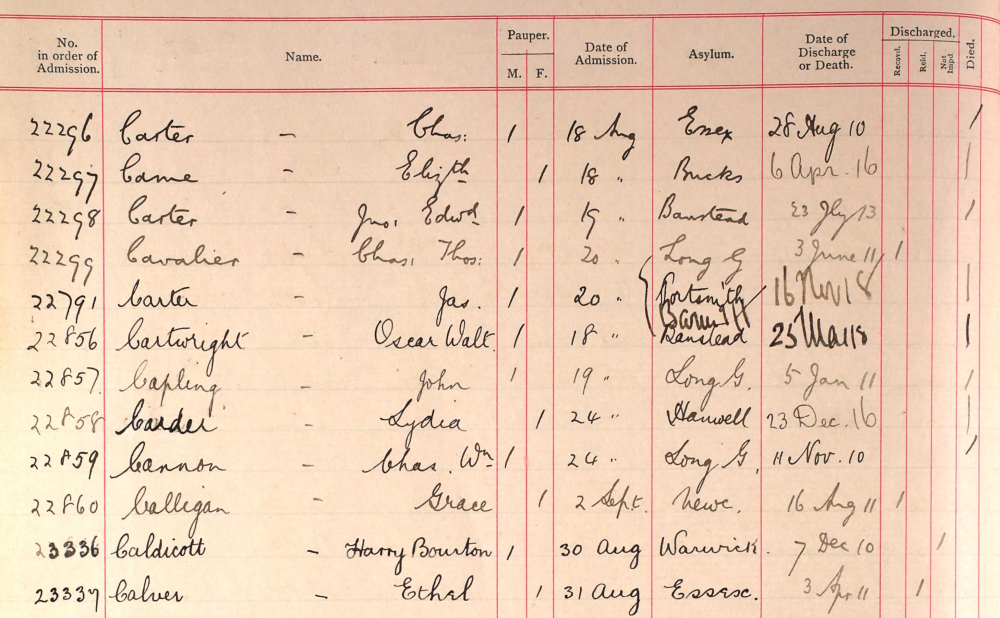 No. in order of Admission. Name. Pauper. M. F. Date of Admission. Asylum. Date of Discharge or Death. Discharged. Recovd. Reld. Not Impd Died.
22296 Carter – Chas: 1 18 Aug Essex 28 Aug 10 1
22297 Came – Elizth 1 18 " Bucks 6 Apr. 16 1
22298 Carter – Jno, Edwd 1 19 " Banstead 23 Jly 13 1
22299 Cavalier – Chas, Thos: 1 20 " Long G 3 June 11 1
22791 Carter – Jas. 1 20 " Portsmth 16 Nov 18 1
22856 Cartwright – Oscar Walt. 1 18 " Banstead 25 Mar 18 1
22857. Capling – John 1 19 " Long G. 5 Jan 11 1
22858 Carder – Lydia 1 24 " Hanwell 23 Dec. 16 1
22859 Cannon – Chas. Wm 1 24 " Long G. 11 Nov. 10 1
22860 Calligan – Grace 1 2 Sept. Newc. 16 Aug 11 1
23336 Caldicott – Harry Bourton 1 30 Aug Warwick. 7 Dec 10 1
23337 Calver – Ethel 1 31 Aug Essex. 3 Apr 11 1